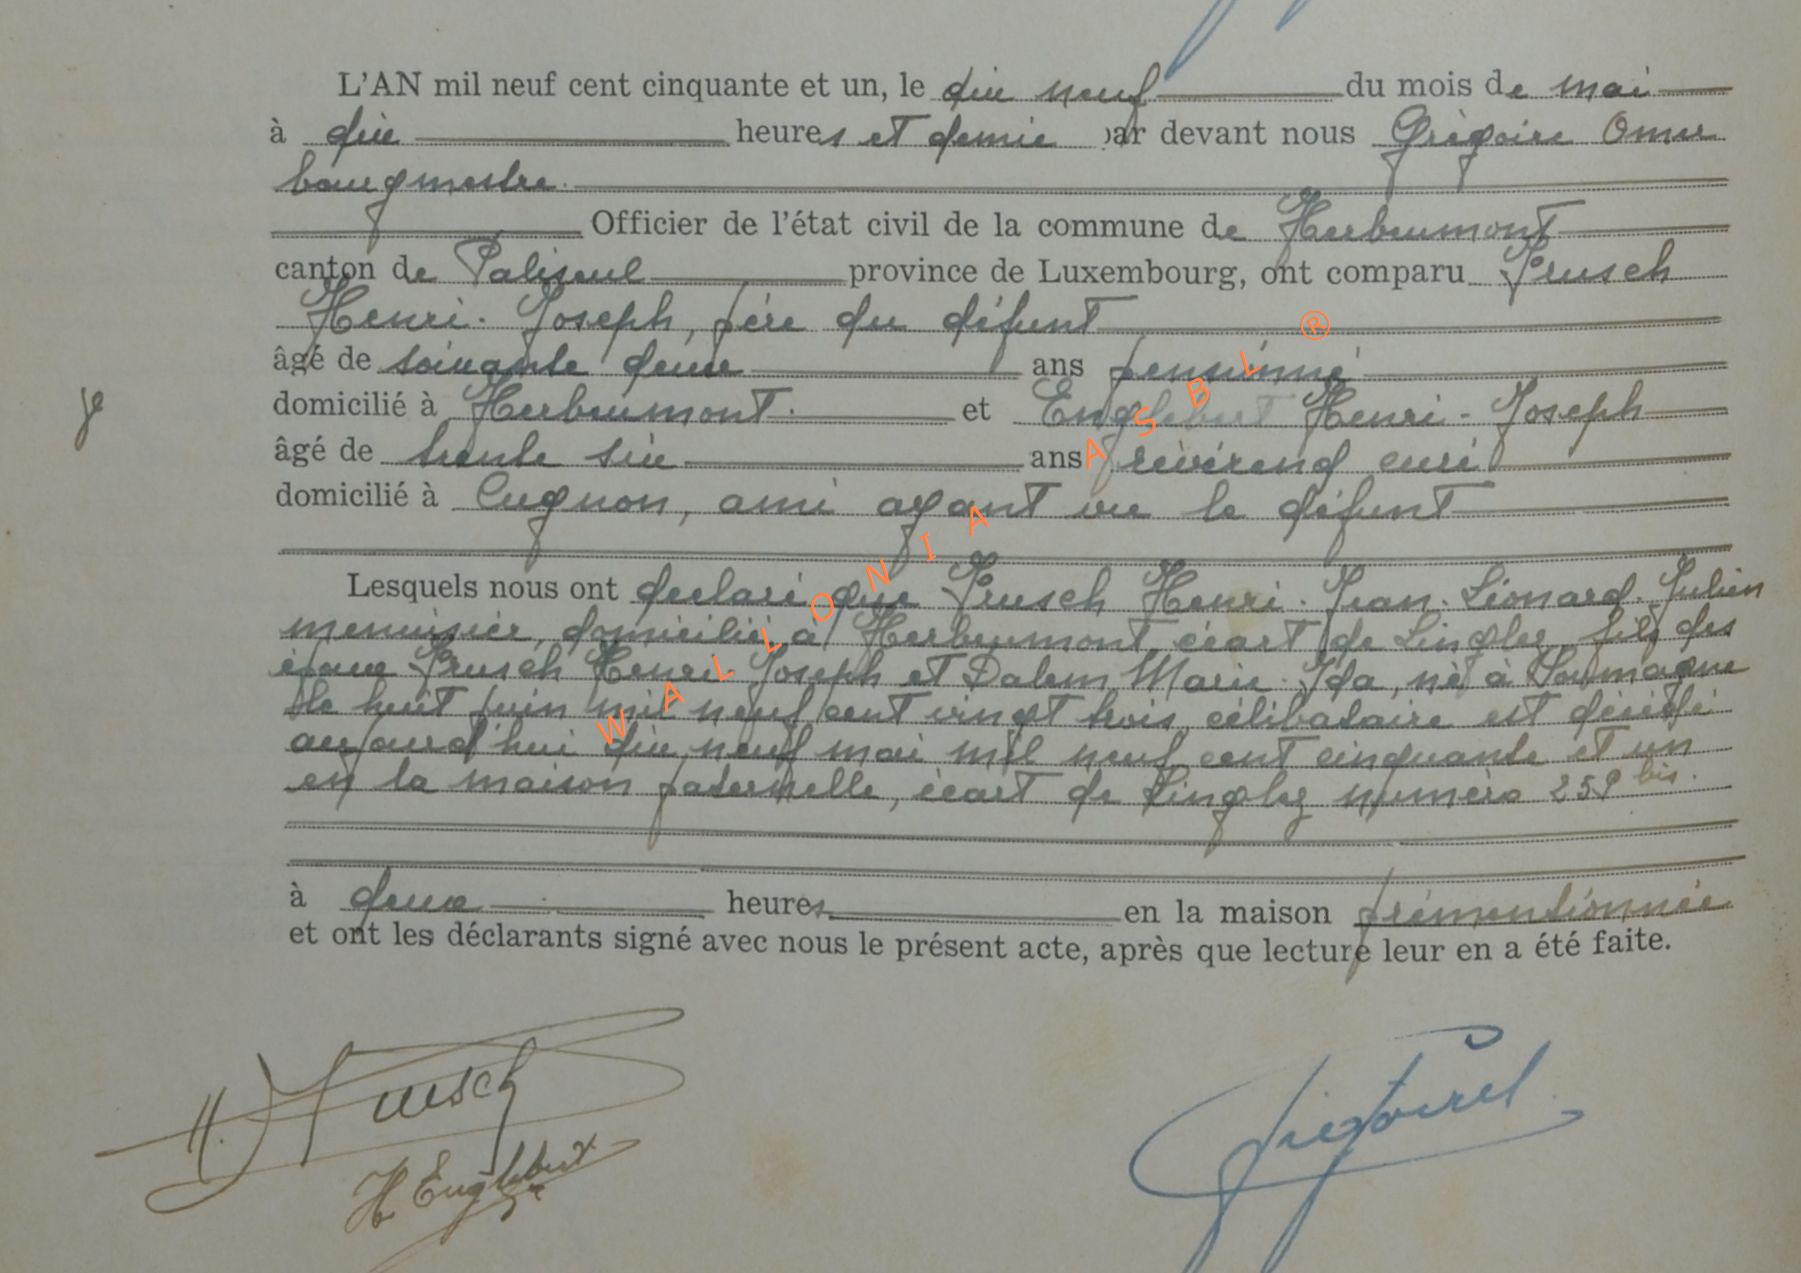 L'AN mil neuf cent cinquante et un, le dix neuf du mois de mai
à dix heures et demie par devant nous Grégoire Omer
bourgmestre.
Officier de l'état civil de la commune de Herbeumont
canton de Paliseul province de Luxembourg, ont comparu Prusch
Henri-Joseph, père du défunt
âgé de soixante deux ans pensionné
domicilié à Herbeumont. et Englebert Henri-Joseph
âgé de trente six ans révérend curé
domicilié à Cugnon, ami ayant vu le défunt
Lesquels nous ont déclaré que Prusch Henri-Jean-Léonard-Julien
menuisier, domicilié à Herbeumont, écart de Linglez, fils des
époux Prusch Henri Joseph et Dalem Marie-Ida, né à
le huit juin mil neuf cent vingt trois, célibataire est décédé
aujourd'hui dix neuf mai mil neuf cent cinquante et un
en la maison paternelle, écart de Linglez numéro 259 bis.
à deux heures en la maison prémentionnée
et ont les déclarants signé avec nous le présent acte, après que lecture leur en a été faite.
H. Prusch
H Englebert
WALLONIA ASBL ®